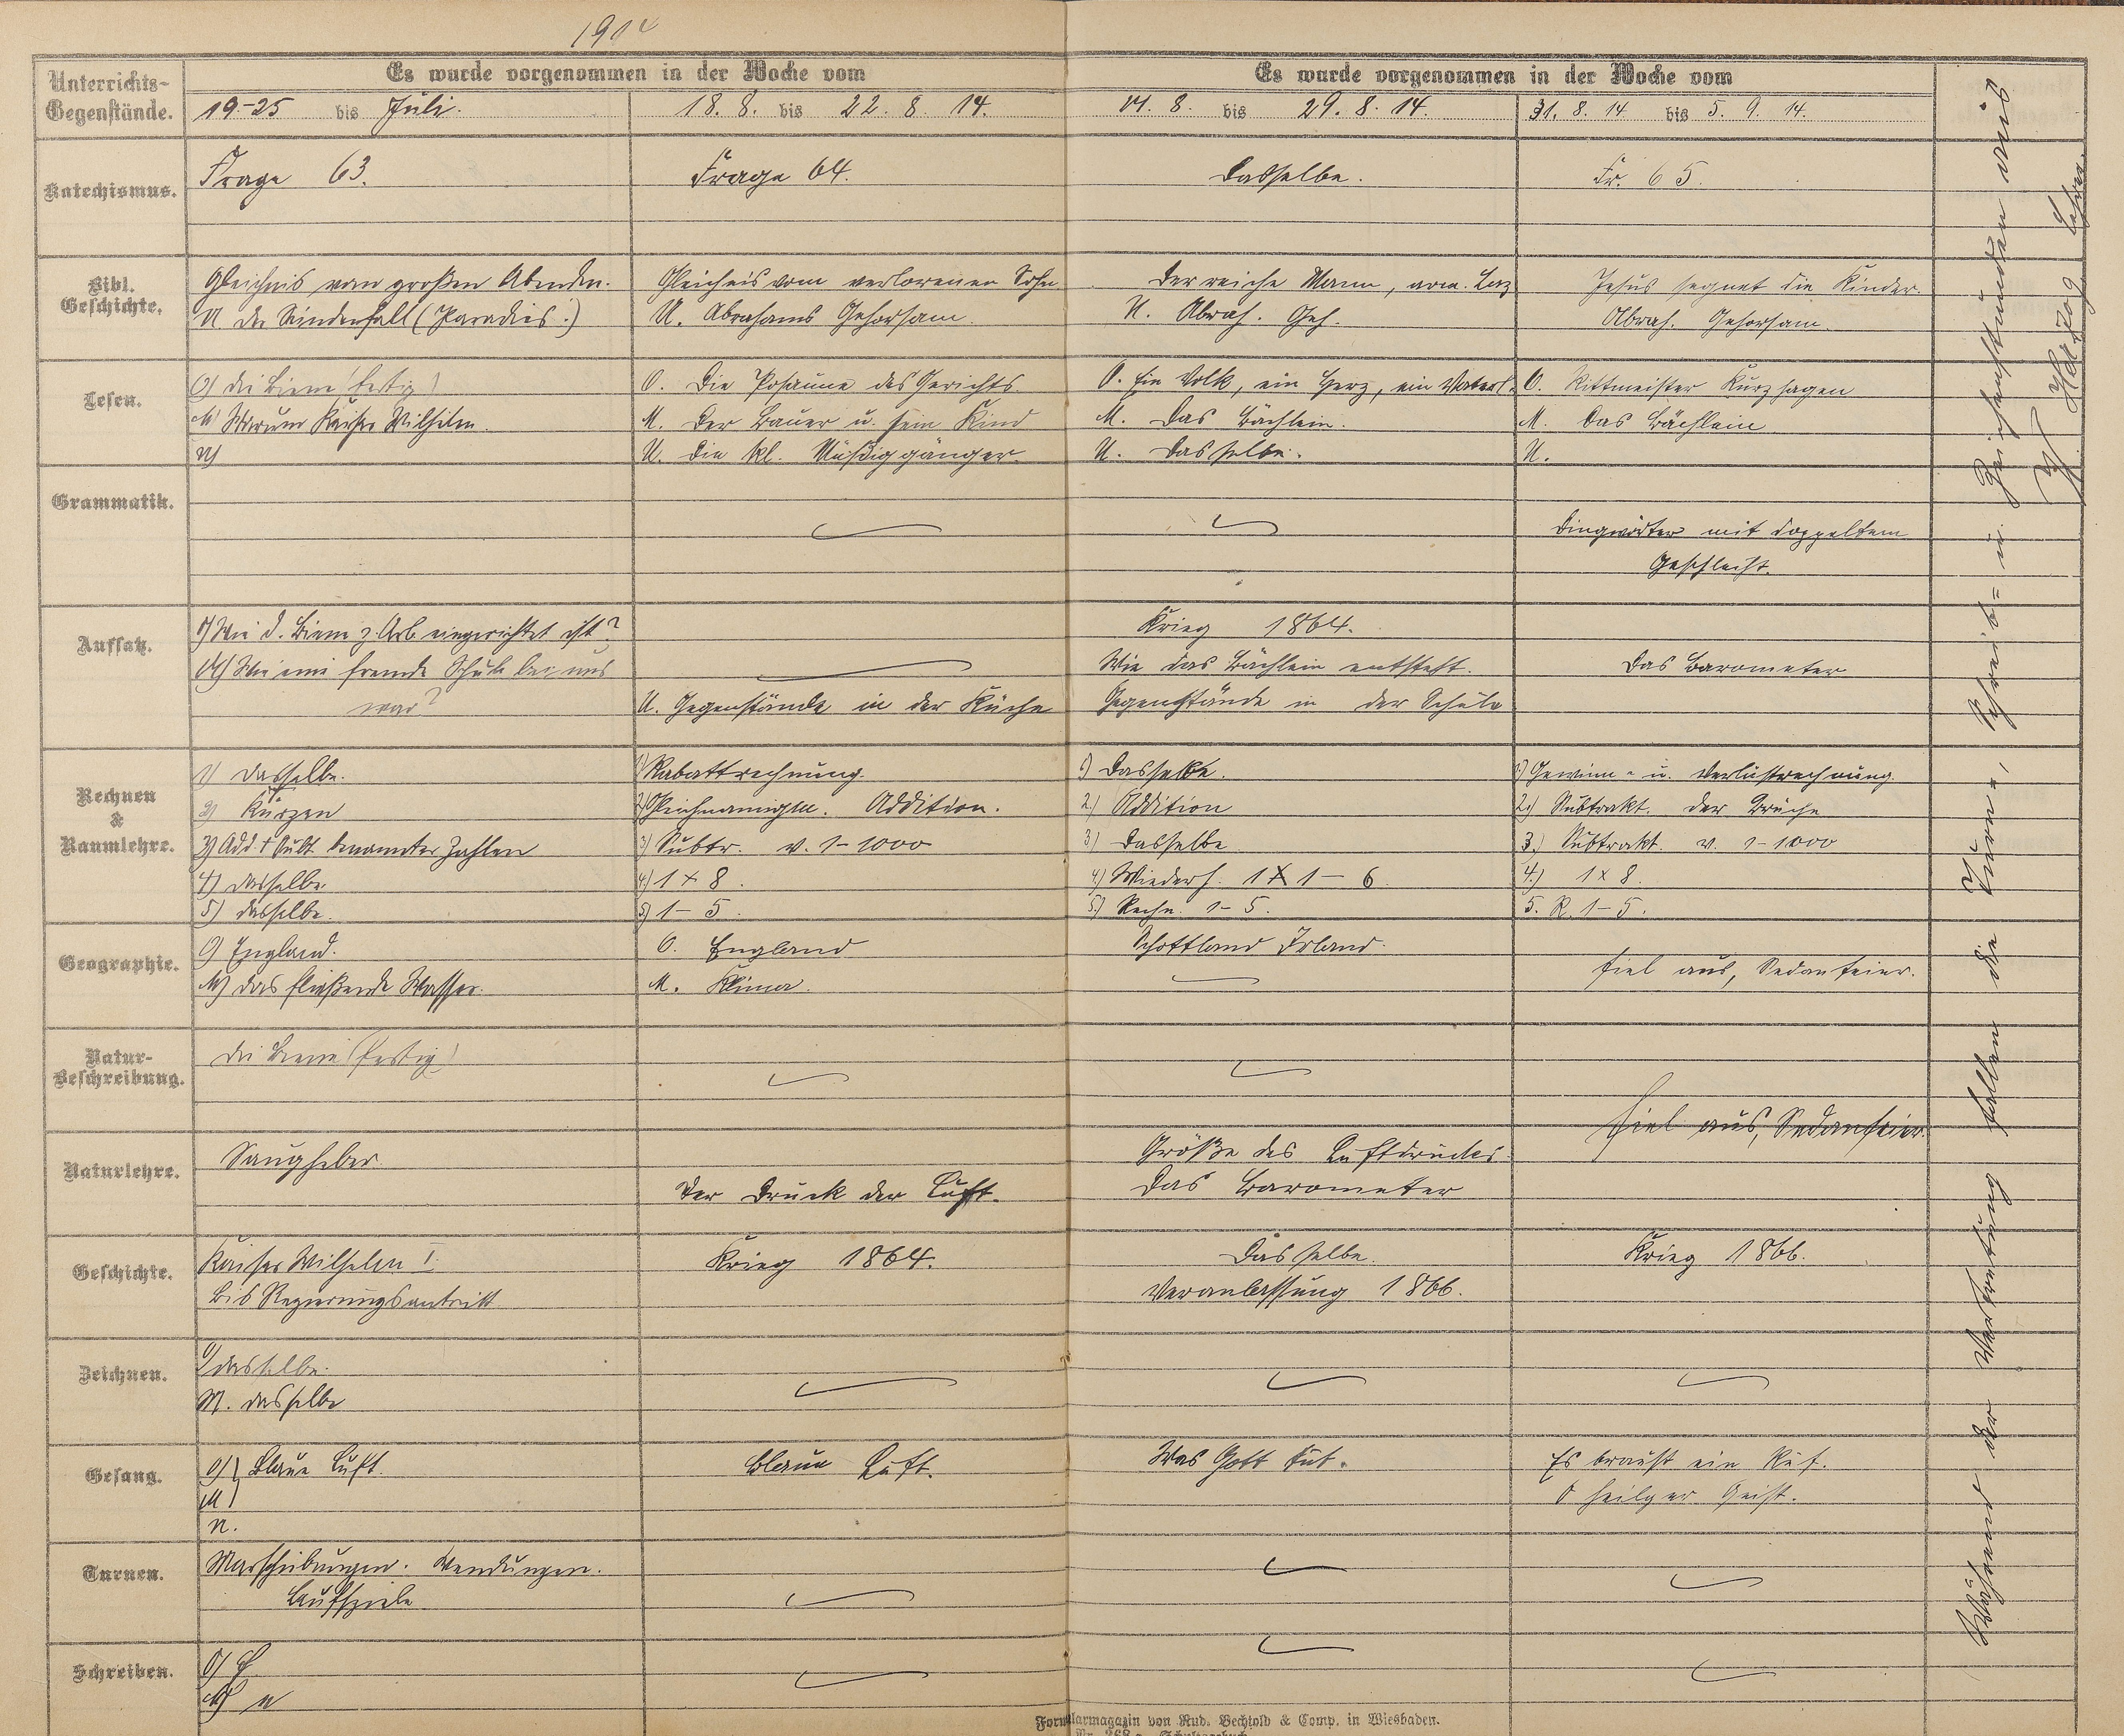 1914
Unterrichts-
Gegenstände.
Es wurde vorgenommen in der Woche vom
Es wurde vorgenommen in der Woche vom
19.-25 bis Juli.
18. 8. bis 22. 8. 14.
24. 8. bis 29. 8. 14.
31. 8. 14 bis 5. 9. 14.
Katechismus.
Frage 63.
Frage 64.
Dasselbe.
Fr. 65.
Bibl.
Geschichte.
Gleichnis vom großen Abendm.
U der Sündenfall (Paradies.)
Gleichnis vom verlorenen Sohn
U. Abrahams Gehorsam
Der reiche Mann, arm. Laz
U. Abrah. Geh.
Jesus segnet die Kinder.
Abrah. Gehorsam.
Lesen.
O) die Biene (fertig)
M Warum Kaiser Wilhelm.
U)
O. Die Posaune des Gerichts.
M. Der Bauer u. sein Kind
U. die kl. Müßiggänger.
O. Ein Volk, ein Herz, ein Vaterl.
M. Das Bächlein.
U. Dasselbe.
O. Rittmeister Kurzhagen
M. Das Bächlein
U.
Grammatik.
Dingwörter mit doppeltem
Geschlecht.
Aufsatz.
O) Wie d. Biene z. Arb. eingerichtet ist?
M) Wie eine fremde Schule bei uns
war?
U. Gegenstände in der Küche
Krieg 1864.
Wie das Bächlein entsteht.
Gegenstände in der Schule
Das Barometer
Rechnen
&
Raumlehre.
1) dasselbe.
2) Kürzen
3) Add. + Subt. benannter Zahlen
4) dasselbe
5) dasselbe.
1) Rabattrechnung.
2) Gleichnamigm. Addition.
3) Subtr. v. 1-1000
4) 1 x 8.
5) 1-5.
1) Dasselbe.
2.) Addition
3) Dasselbe
4) Wiederh. 1 x 1 - 6.
5) Rechn. 1-5.
1) Gewinn- u. Verlustrechnung.
2.) Subtrakt. der Brüche
3.) Subtrakt. v. 1-1000
4.) 1 x 8.
5. R. 1-5.
Geographie.
O) England.
M) das fließende Wasser.
O. England
M. Klima.
Schottland Irland.
fiel aus, Sedanfeier.
Natur-
Beschreibung.
die Biene (fertig)
Naturlehre.
Saugheber
Der Druck der Luft.
Größe des Luftdruckes
Das Barometer
fiel aus, Sedanfeier.
Geschichte.
Kaiser Wilhelm I.
bis Regierungsantritt
Krieg 1864.
Dasselbe.
Veranlassung 1866.
Krieg 1866.
Zeichnen.
O) dasselbe.
M. dasselbe
Gesang.
O) Blaue Luft.
M
U.
Blaue Luft.
Was Gott tut.
Es braust ein Ruf.
O heilger Geist.
Turnen.
Marschübungen. Wendungen.
Laufspiele
Schreiben.
O)
M) n
Während der Vertretung fallen die Turn-, Schreib- u. Zeichenstunden aus
Herzog Lehrer.
Formularmagazin von Rud. Bechtold & Comp. in Wiesbaden.